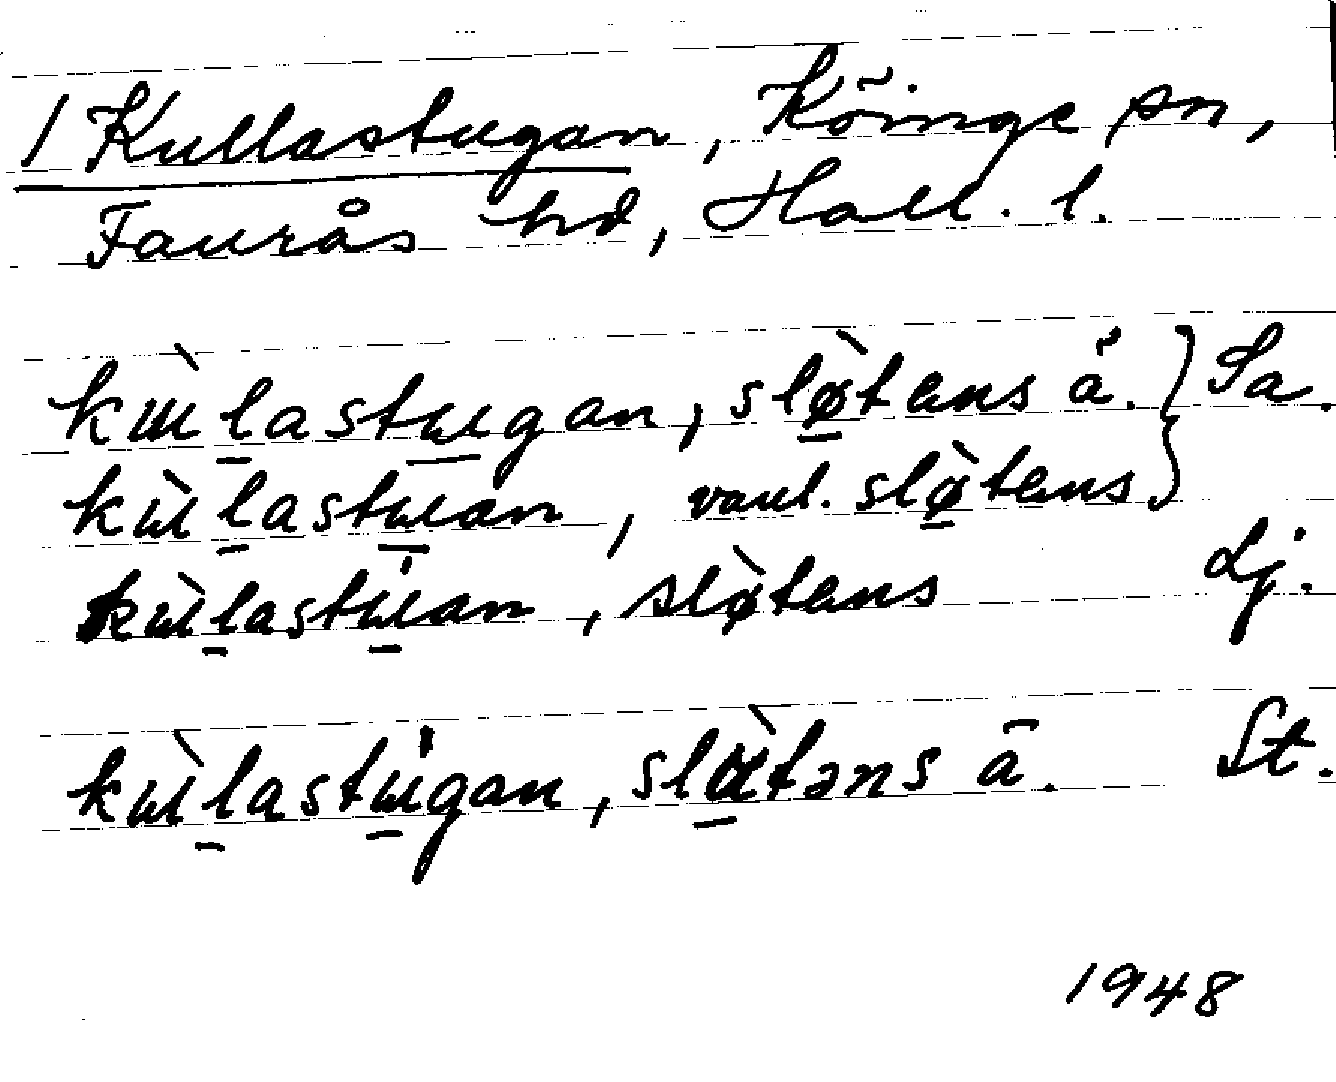 1 Kullastugan, Köinge sn,
Faurås hd, Hall. l.
kɯ̀l̠astɯ̠gan, slø̠̀tens å. } Sa.
kɯ̀l̠astɯ̠an, vanl. slø̠̀tens
kɯ̀l̠astɯ̠́an, sløtens Lj.
kɯ̀l̠astɯ̠́gan, slø̠̀təns ā. St.
1948